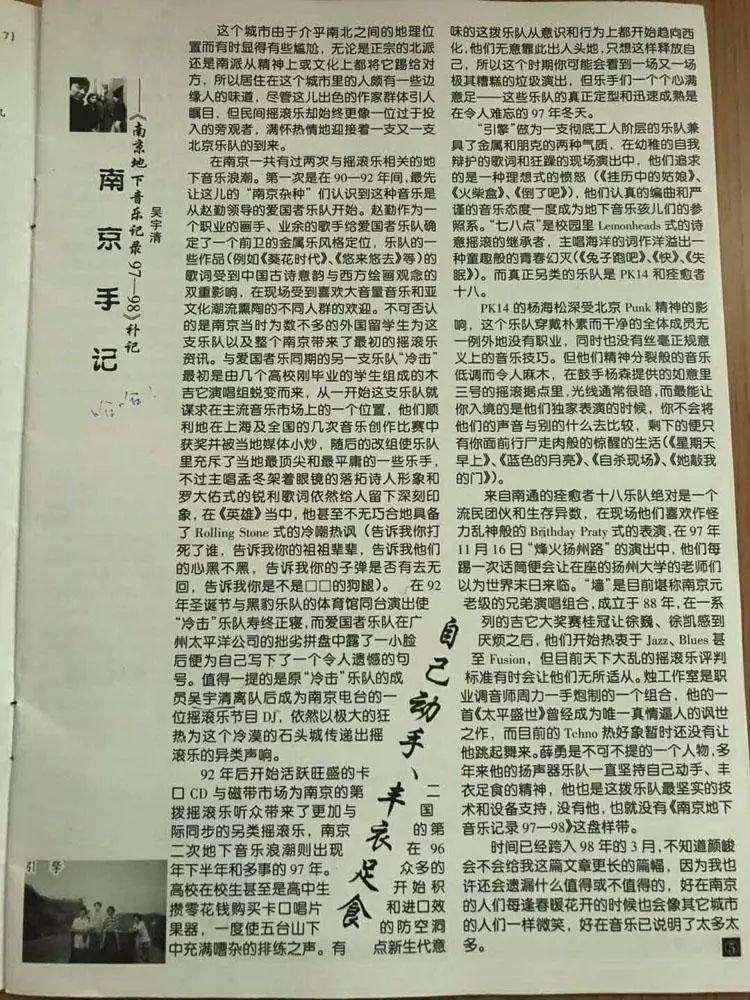 南京手记
——《南京地下音乐记录97—98》补记
吴宇清
这个城市由于介乎南北之间的地理位
置而有时显得有些尴尬，无论是正宗的北派
还是南派从精神上或文化上都将它踢给对
方，所以居住在这个城市里的人颇有一些边
缘人的味道，尽管这儿出色的作家群体引人
瞩目，但民间摇滚乐却始终更像一位过于投
入的旁观者，满怀热情地迎接着一支又一支
北京乐队的到来。
在南京一共有过两次与摇滚乐相关的地
下音乐浪潮。第一次是在90—92年间，最先
让这儿的“南京杂种”们认识到这种音乐是
从赵勤领导的爱国者乐队开始。赵勤作为一
个职业的画手、业余的歌手给爱国者乐队确
定了一个前卫的金属乐风格定位，乐队的一
些作品（例如《葵花时代》、《悠来悠去》等）的
歌词受到中国古诗意韵与西方绘画观念的
双重影响，在现场受到喜欢大音量音乐和亚
文化潮流熏陶的不同人群的欢迎。不可否认
的是南京当时为数不多的外国留学生为这
支乐队以及整个南京带来了最初的摇滚乐
资讯。与爱国者乐队同期的另一支乐队“冷击”
最初是由几个高校刚毕业的学生组成的木
吉它演唱组蜕变而来，从一开始这支乐队就
谋求在主流音乐市场上的一个位置，他们顺
利地在上海及全国的几次音乐创作比赛中
获奖并被当地媒体小炒，随后的改组使乐队
里充斥了当地最顶尖和最平庸的一些乐手，
不过主唱孟冬架着眼镜的落拓诗人形象和
罗大佑式的锐利歌词依然给人留下深刻印
象，在《英雄》当中，他甚至不无巧合地具备
了Rolling Stone式的冷嘲热讽（告诉我你打
死了谁，告诉我你的祖祖辈辈，告诉我他们
的心黑不黑，告诉我你的子弹是否有去无
回，告诉我你是不是□□的狗腿）。在92
年圣诞节与黑豹乐队的体育馆同台演出使
“冷击”乐队寿终正寝，而爱国者乐队在广
州太平洋公司的拙劣拼盘中露了一小脸
后便为自己写下了一个令人遗憾的句
号。值得一提的是原“冷击”乐队的成
员吴宇清离队后成为南京电台的一
位摇滚乐节目DJ，依然以极大的狂
热为这个冷漠的石头城传递出摇
滚乐的异类声响。
92年后开始活跃旺盛的卡
口CD与磁带市场为南京的第二
拨摇滚乐听众带来了更加与国
际同步的另类摇滚乐，南京的第
二次地下音乐浪潮则出现在96
年下半年和多事的97年。众多的
高校在校生甚至是高中生开始积
攒零花钱购买卡口唱片和进口效
果器，一度使五台山下的防空洞
中充满嘈杂的排练之声。有点新生代意
自己动手、丰衣足食
引擎
味的这拨乐队从意识和行为上都开始趋向西
化，他们无意靠此出人头地，只想这样释放自
己，所以这个时期你可能会看到一场又一场
极其糟糕的垃圾演出，但乐手们一个个心满
意足——这些乐队的真正定型和迅速成熟是
在令人难忘的97年冬天。
“引擎”做为一支彻底工人阶层的乐队兼
具了金属和朋克的两种气质，在幼稚的自我
辩护的歌词和狂躁的现场演出中，他们追求
的是一种理想式的愤怒（《挂历中的姑娘》、
《火柴盒》、《倒了吧》），他们认真的编曲和严
谨的音乐态度一度成为地下音乐孩儿们的参
照系。“七八点”是校园里Lemonheads式的诗
意摇滚的继承者，主唱海洋的词作洋溢出一
种童趣般的青春幻灭（《兔子跑吧》、《快》、《失
眠》）。而真正另类的乐队是PK14和痊愈者
十八。
PK14的杨海松深受北京Punk精神的影
响，这个乐队穿戴朴素而干净的全体成员无
一例外地没有职业，同时也没有丝毫正规意
义上的音乐技巧。但他们精神分裂般的音乐
低调而令人麻木，在鼓手杨森提供的如意里
三号的摇滚据点里，光线通常很暗，而最能让
你入境的是他们独家表演的时候，你不会将
他们的声音与别的什么去比较，剩下的便只
有你面前行尸走肉般的惊醒的生活（《星期天
早上》、《蓝色的月亮》、《自杀现场》、《她敲我
的门》）。
来自南通的痊愈者十八乐队绝对是一个
流民团伙和生存异数，在现场他们喜欢作怪
力乱神般的Brithday Praty式的表演，在97年
11月16日“烽火扬州路”的演出中，他们每
踢一次话筒便会让在座的扬州大学的老师们
以为世界末日来临。“墙”是目前堪称南京元
老级的兄弟演唱组合，成立于88年，在一系
列的吉它大奖赛桂冠让徐巍、徐凯感到
厌烦之后，他们开始热衷于Jazz、Blues甚
至Fusion，但目前天下大乱的摇滚乐评判
标准有时会让他们无所适从。烛工作室是职
业调音师周力一手炮制的一个组合，他的一
首《太平盛世》曾经成为唯一真情逼人的讽世
之作，而目前的Tchno热好象暂时还没有让
他跳起舞来。薛勇是不可不提的一个人物，多
年来他的扬声器乐队一直坚持自己动手、丰
衣足食的精神，他也是这拨乐队最坚实的技
术和设备支持，没有他，也就没有《南京地下
音乐记录97—98》这盘样带。
时间已经跨入98年的3月，不知道颜峻
会不会给我这篇文章更长的篇幅，因为我也
许还会遗漏什么值得或不值得的，好在南京
的人们每逢春暖花开的时候也会像其它城市
的人们一样微笑，好在音乐已说明了太多太
多。
5